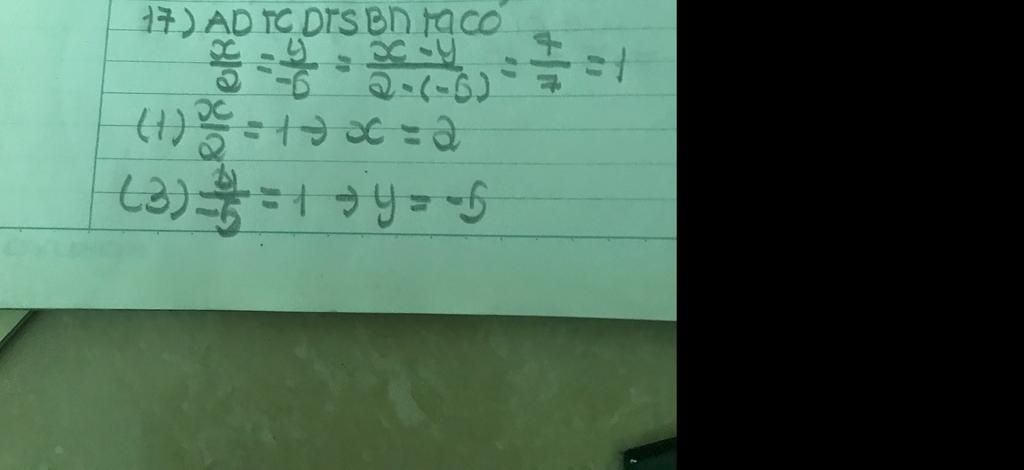 17) AD TC DTSBN TA CÓ
x/2 = y/-5 = x-y/2-(-5) = 7/7 = 1
(1) x/2 = 1 → x = 2
(3) y/-5 = 1 → y = -5